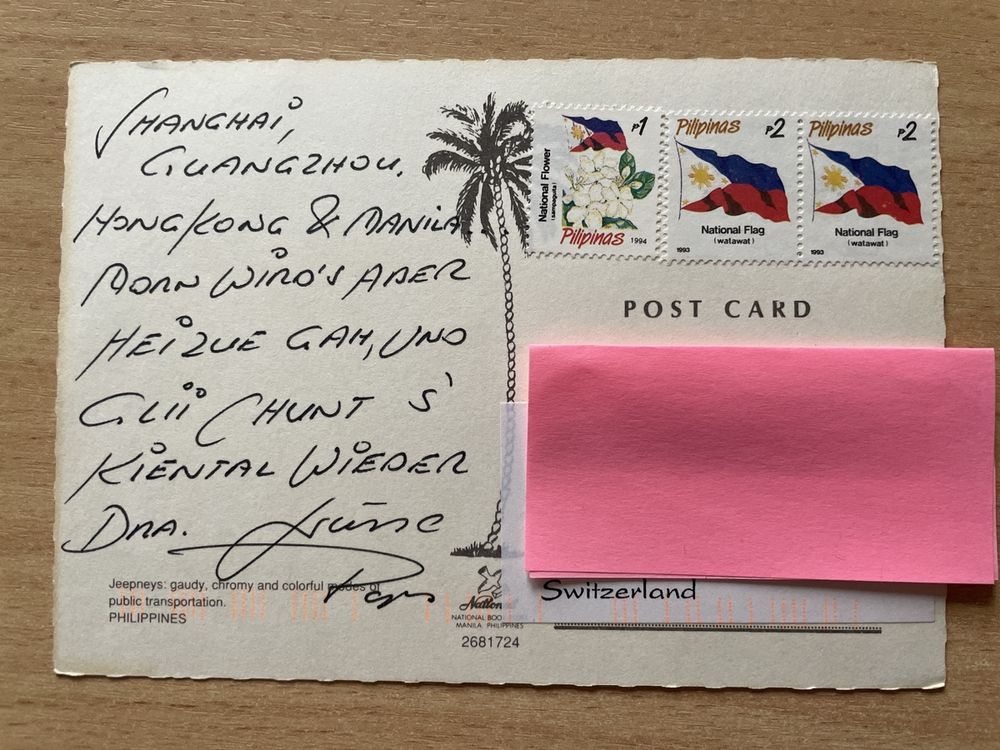 SHANGHAI,
GUANGZHOU,
HONGKONG & MANILA
MORN WIRD'S ABER
HEIZUE GAH, UND
GLII CHUNT S'
KIENTAL WIEDER
DRA.
Jeepneys: gaudy, chromy and colorful modes of
public transportation.
PHILIPPINES
National Flower
(sampaguita)
₱1
Pilipinas
1994
Pilipinas
₱2
National Flag
(watawat)
1993
Pilipinas
₱2
National Flag
(watawat)
1993
POST CARD
Switzerland
NATIONAL BOO
MANILA, PHILIPPINES
2681724